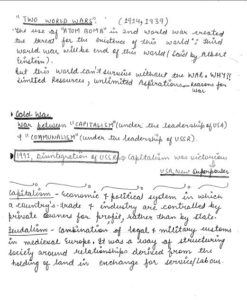 " TWO WORLD WARS" (1914, 1939)
"the use of "ATOM BOMB" in 2nd world war created
the threat for the existence of this world" ; third
world war will be end of this world (said by Albert
Einstein).
but this world can't survive without the WAR. WHY?
Limited Resources, unlimited Aspirations Reasons for
war
Cold War
War between "CAPITALISM" (under the leadership of USA)
& "COMMUNALISM" (under the leadership of USSR).
1991, Disintegration of USSR Capitalism was victorious
USA New Superpower
Capitalism - economic & political system in which
a country's trade & industry are controlled by
private owners for profit, rather than by state.
Feudalism - combination of legal & military customs
in medieval Europe. It was a way of structuring
society around relationships derived from the
holding of land in exchange for service/labour.